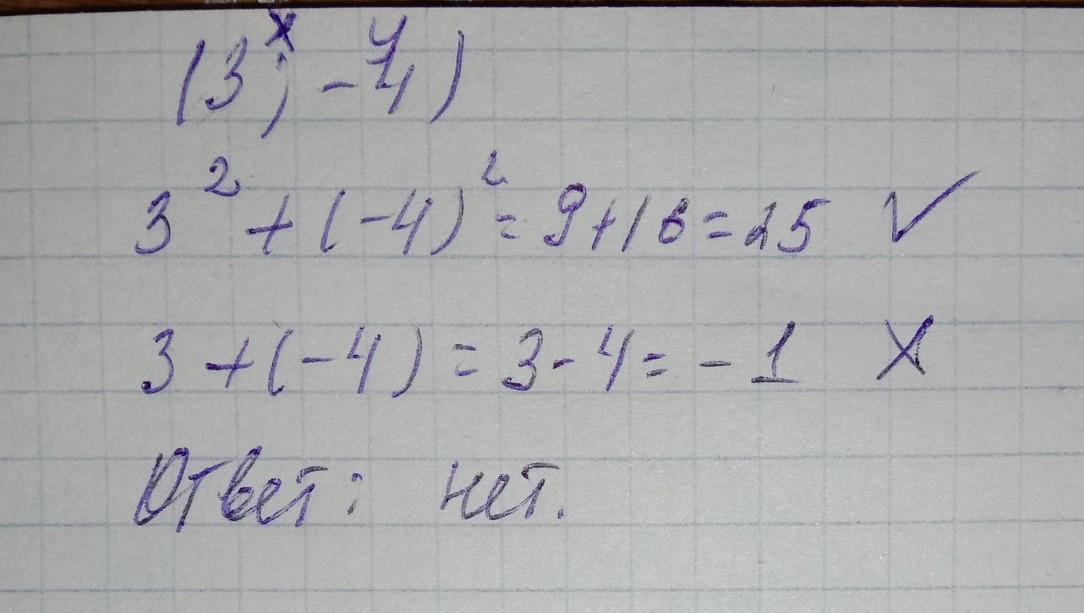 x y
(3; -4)
3² + (-4)² = 9+16 = 25 ✓
3 + (-4) = 3 - 4 = - 1 X
Ответ: нет.